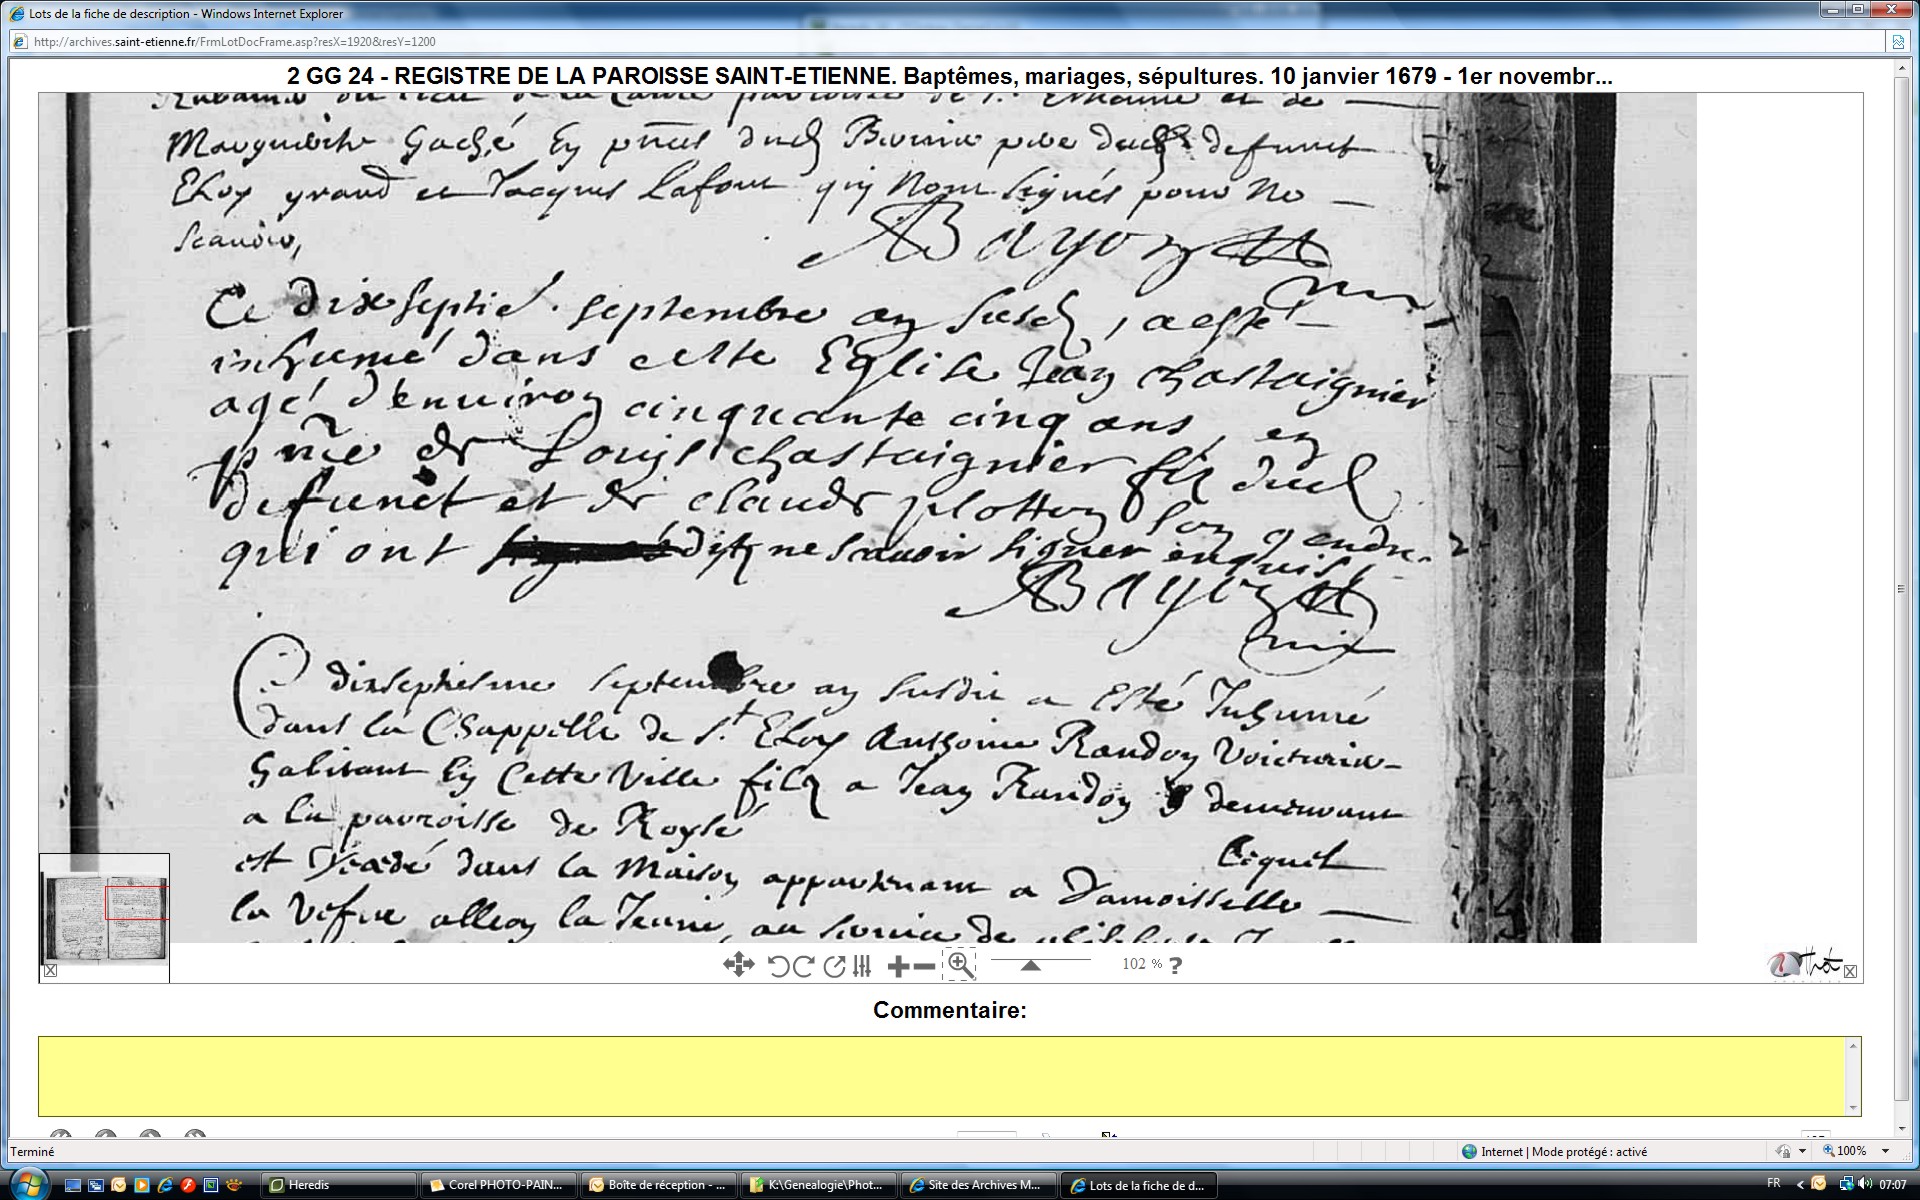 Lots de la fiche de description - Windows Internet Explorer
http://archives.saint-etienne.fr/FrmLotDocFrame.asp?resX=1920&resY=1200
2 GG 24 - REGISTRE DE LA PAROISSE SAINT-ETIENNE. Baptêmes, mariages, sépultures. 10 janvier 1679 - 1er novembr...
Gaché Ey
pere defunct
ELoy grand et Jacques Lafont quy Nont signés pour Ne
Scauoir,
Bayon
Ce dixseptie. septembre an susd, a esté
inhumé dans cette Eglise Jean chastaignier
agé d'enuiron cinquante cinq ans, en
pnce de Louys chastaignier filz dud
defunct et de claude plotton son gendre
qui ont ditz ne scauoir signer enquis
Bayon
Ce dixseptiesme septembre an susdit a Esté Inhumé
dans la Chappelle de St. ELoy Anthoine Randon Voicturier
habitant En Cette Ville filz a Jean Randon demeurant
a la parroisse de
Lequel
est decedé dans la Maison appartenant a Damoiselle
la Vefue alleon la Jeune, au seruice de
102 % ?
Commentaire:
Terminé
Internet | Mode protégé : activé
100%
Heredis
Corel PHOTO-PAIN...
Boîte de réception - ...
K:\Genealogie\Phot...
Site des Archives M...
Lots de la fiche de d...
FR
07:07